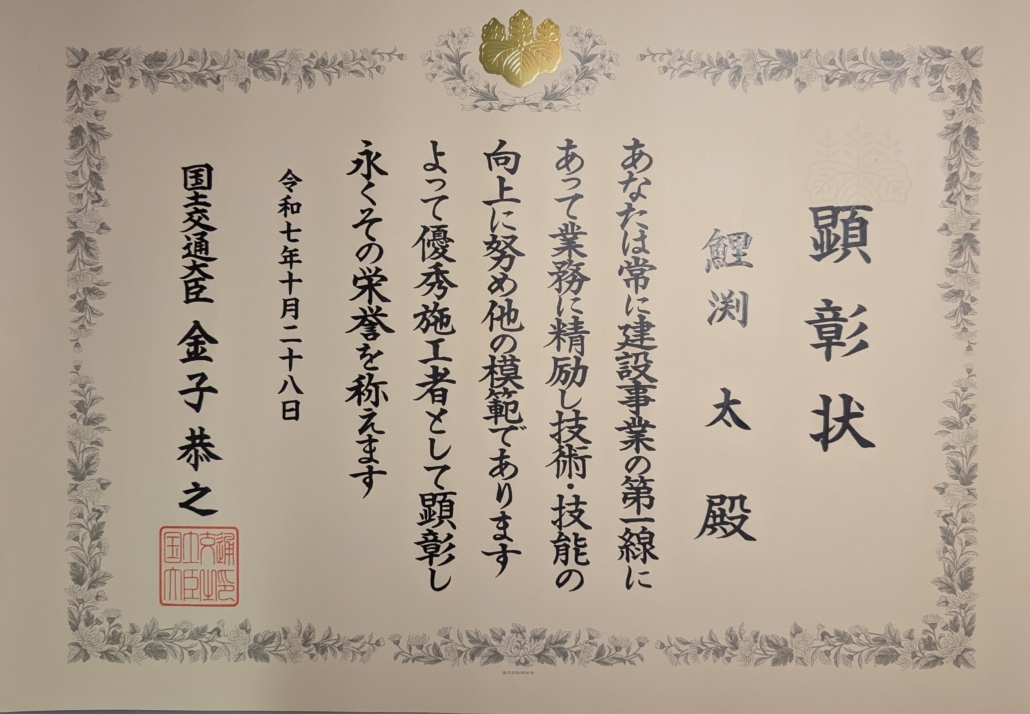 顕彰状
鯉渕 太 殿
あなたは常に建設事業の第一線に
あって業務に精励し技術・技能の
向上に努め他の模範であります
よって優秀施工者として顕彰し
永くその栄誉を称えます
令和七年十月二十八日
国土交通大臣 金子恭之